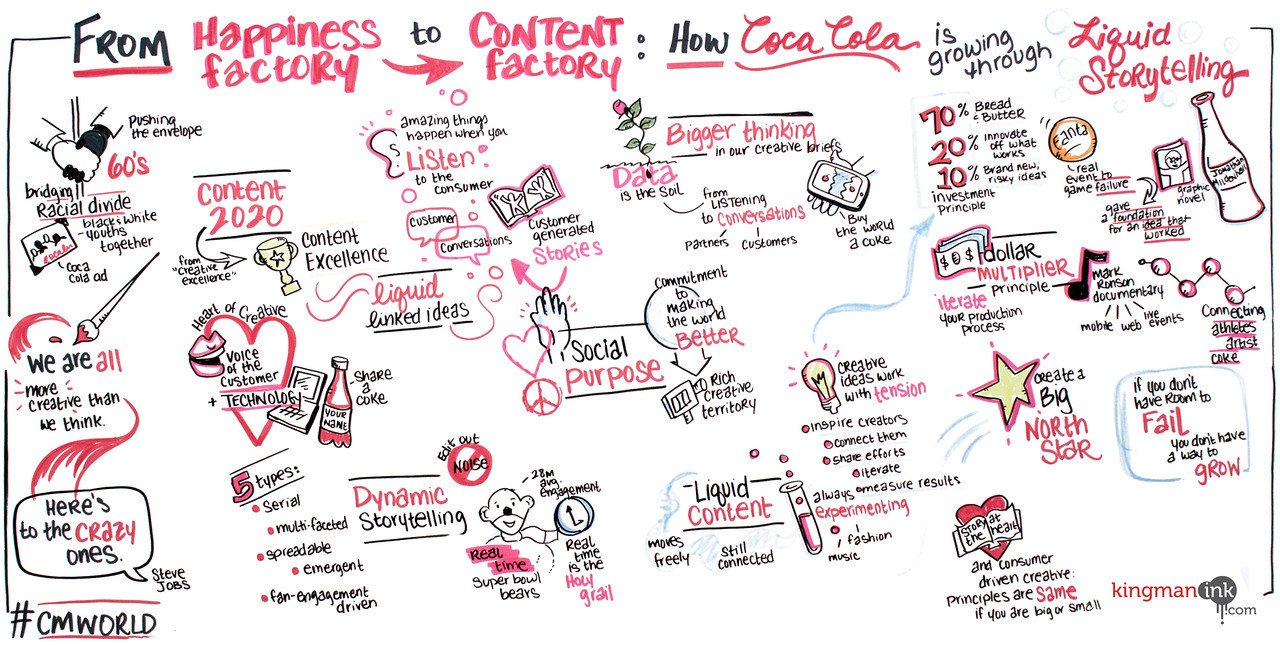 From Happiness factory to Content factory: How Coca Cola is growing through Liquid Storytelling
Pushing
the envelope
60's
bridging
Racial divide
black & white
youths
together
Coca
Cola ad
we are all
more
creative than
we think.
Here's
to the CRAZY
ones.
Steve
Jobs
#CMWORLD
Content
2020
from
"creative
excellence"
Content
Excellence
liquid
linked ideas
Heart of Creative
Voice
of the
Customer
+ TECHNOLOGY
YOUR
NAME
Share
a
coke
5 types:
Serial
multi-faceted
spreadable
emergent
fan-engagement
driven
Dynamic
Storytelling
Edit out
NOISE
28M
avg.
engagement
Real
time
Super bowl
bears
Real
time
is the
Holy
grail
amazing things
happen when you
Listen:
to the
consumer
Customer
Conversations
Customer
generated
Stories
Social
purpose
Commitment
to
making
the world
Better
Rich
creative
territory
Data
is the soil
Bigger thinking
in our creative briefs
from
Listening
to conversations
Partners
customers
Buy
the world
a coke
creative
ideas work
with tension
inspire creators
connect them
share efforts
iterate
measure results
Liquid
Content
moves
freely
Still
connected
always
experimenting
fashion
music
70% Bread
& Butter
20% innovate
off what
works
10% Brand new,
risky ideas
investment
Principle
Fanta
real
event to
game failure
gave
a foundation
for an idea that
worked
graphic
novel
Jonathan
Mildenhall
dollar
MULTIPLIER
Principle
iterate
your production
process
Mark
Ronson
documentary
mobile web live
events
Connecting
athletes
artist
coke
create a
Big
North
Star
if you don't
have room to
Fail
you don't have
a way to
grow
STORY at
the heart
and consumer
driven creative:
Principles are Same
if you are big or small
kingmanink
.com